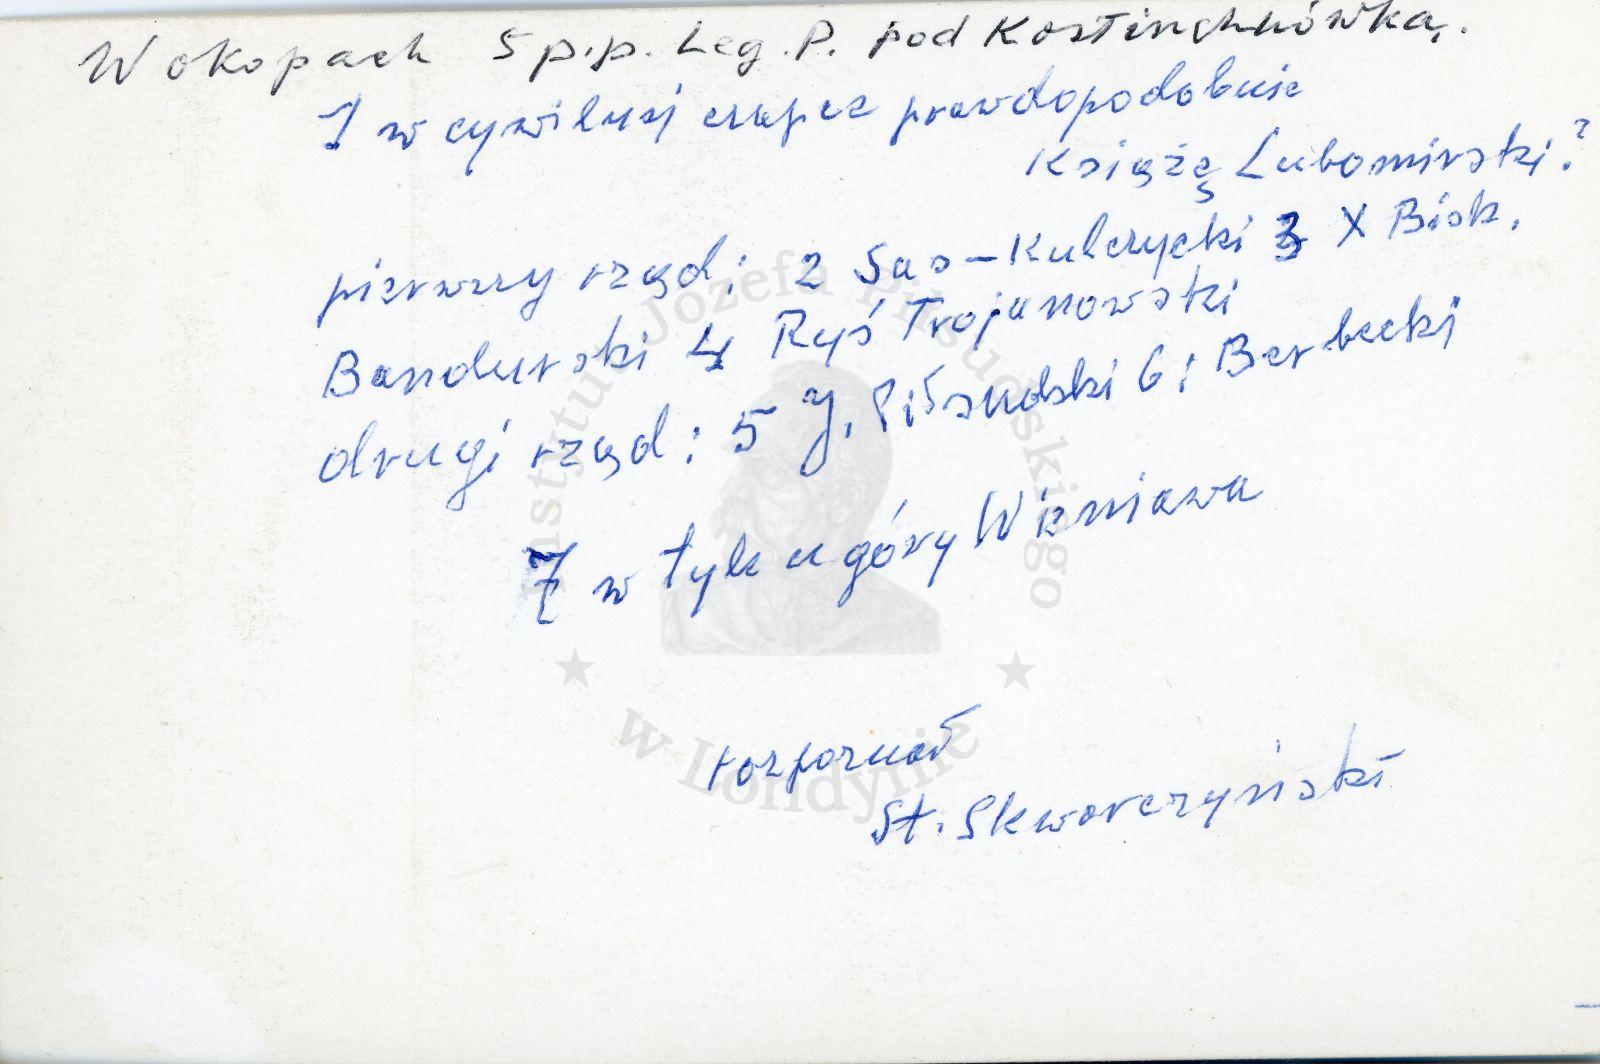 W okopach 5 p.p. Leg. P. pod Kostiuchnówką.
1 w cywilnej czapce prawdopodobnie
Książę Lubomirski?
pierwszy rząd: 2 Sas-Kulczycki 3 X Bisk.
Bandurski 4 Ryś Trojanowski
drugi rząd: 5 J. Piłsudski 6: Berbecki
7 w tyle u góry Wieniawa
rozpoznał
St. Skwarczyński
Instytut Józefa Piłsudskiego
w Londynie